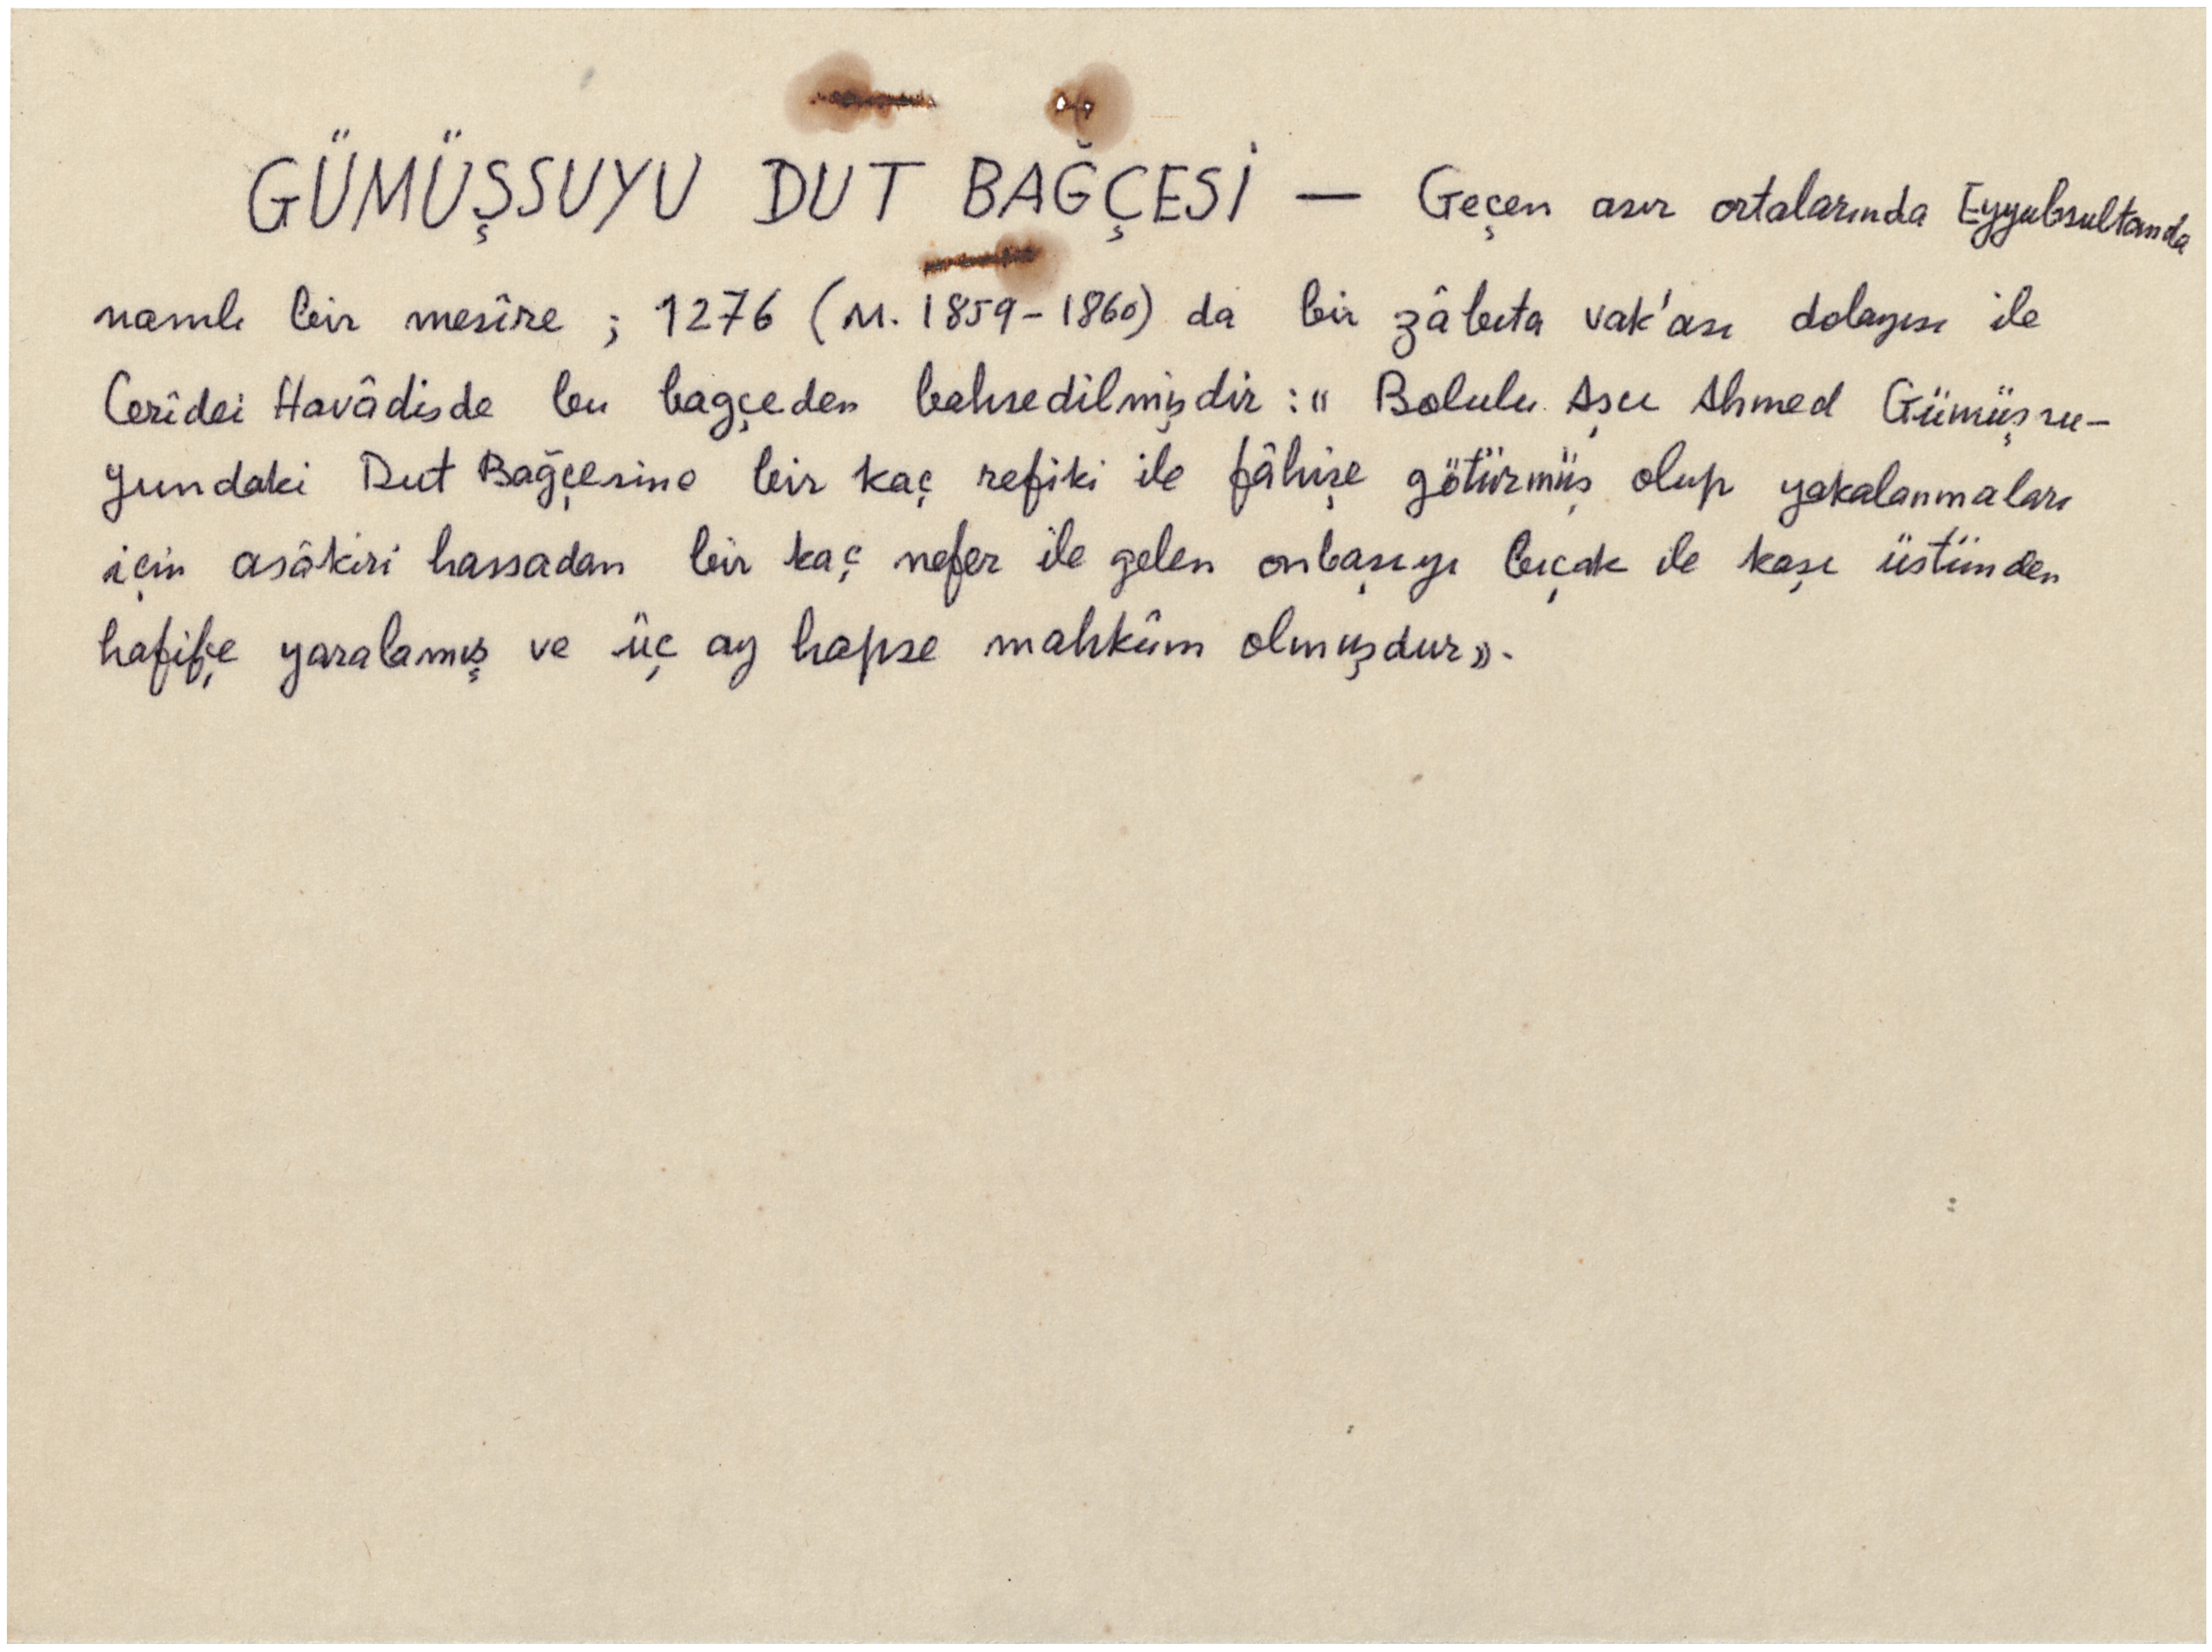 GÜMÜŞSUYU DUT BAĞÇESİ — Geçen asır ortalarında Eyyubsultanda
namlı bir mesîre ; 1276 (M. 1859-1860) da bir zâbıta vak'ası dolayısı ile
Cerîdei Havâdisde bu bagçeden bahsedilmişdir : « Bolulu Aşcı Ahmed Gümüşsu-
yundaki Dut Bağçesine bir kaç refiki ile fâhişe götürmüş olup yakalanmaları
için asâkiri hassadan bir kaç nefer ile gelen onbaşıyı bıçak ile kaşı üstünden
hafifçe yaralamış ve üç ay hapse mahkûm olmuşdur».